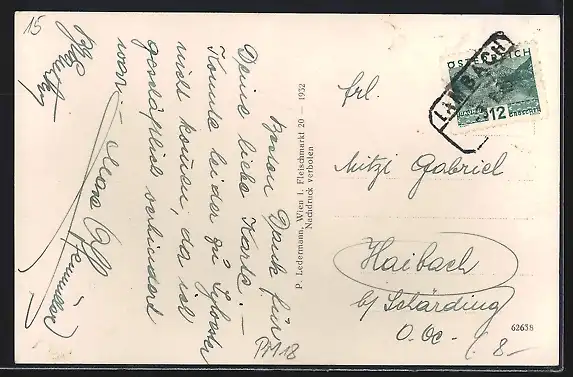 15
Besten Dank für
Deine liebe Karte. —
Konnte leider zu Sylvester
nicht kommen, da ich
geschäftlich verhindert
war. —
PM18
P. Ledermann, Wien I. Fleischmarkt 20 — 1932
Nachdruck verboten
ÖSTERREICH
12 GROSCHEN
LAMBACH
Frl.
Mitzi Gabriel
Haibach
b/ Schärding
O. Oe.
62638
8-